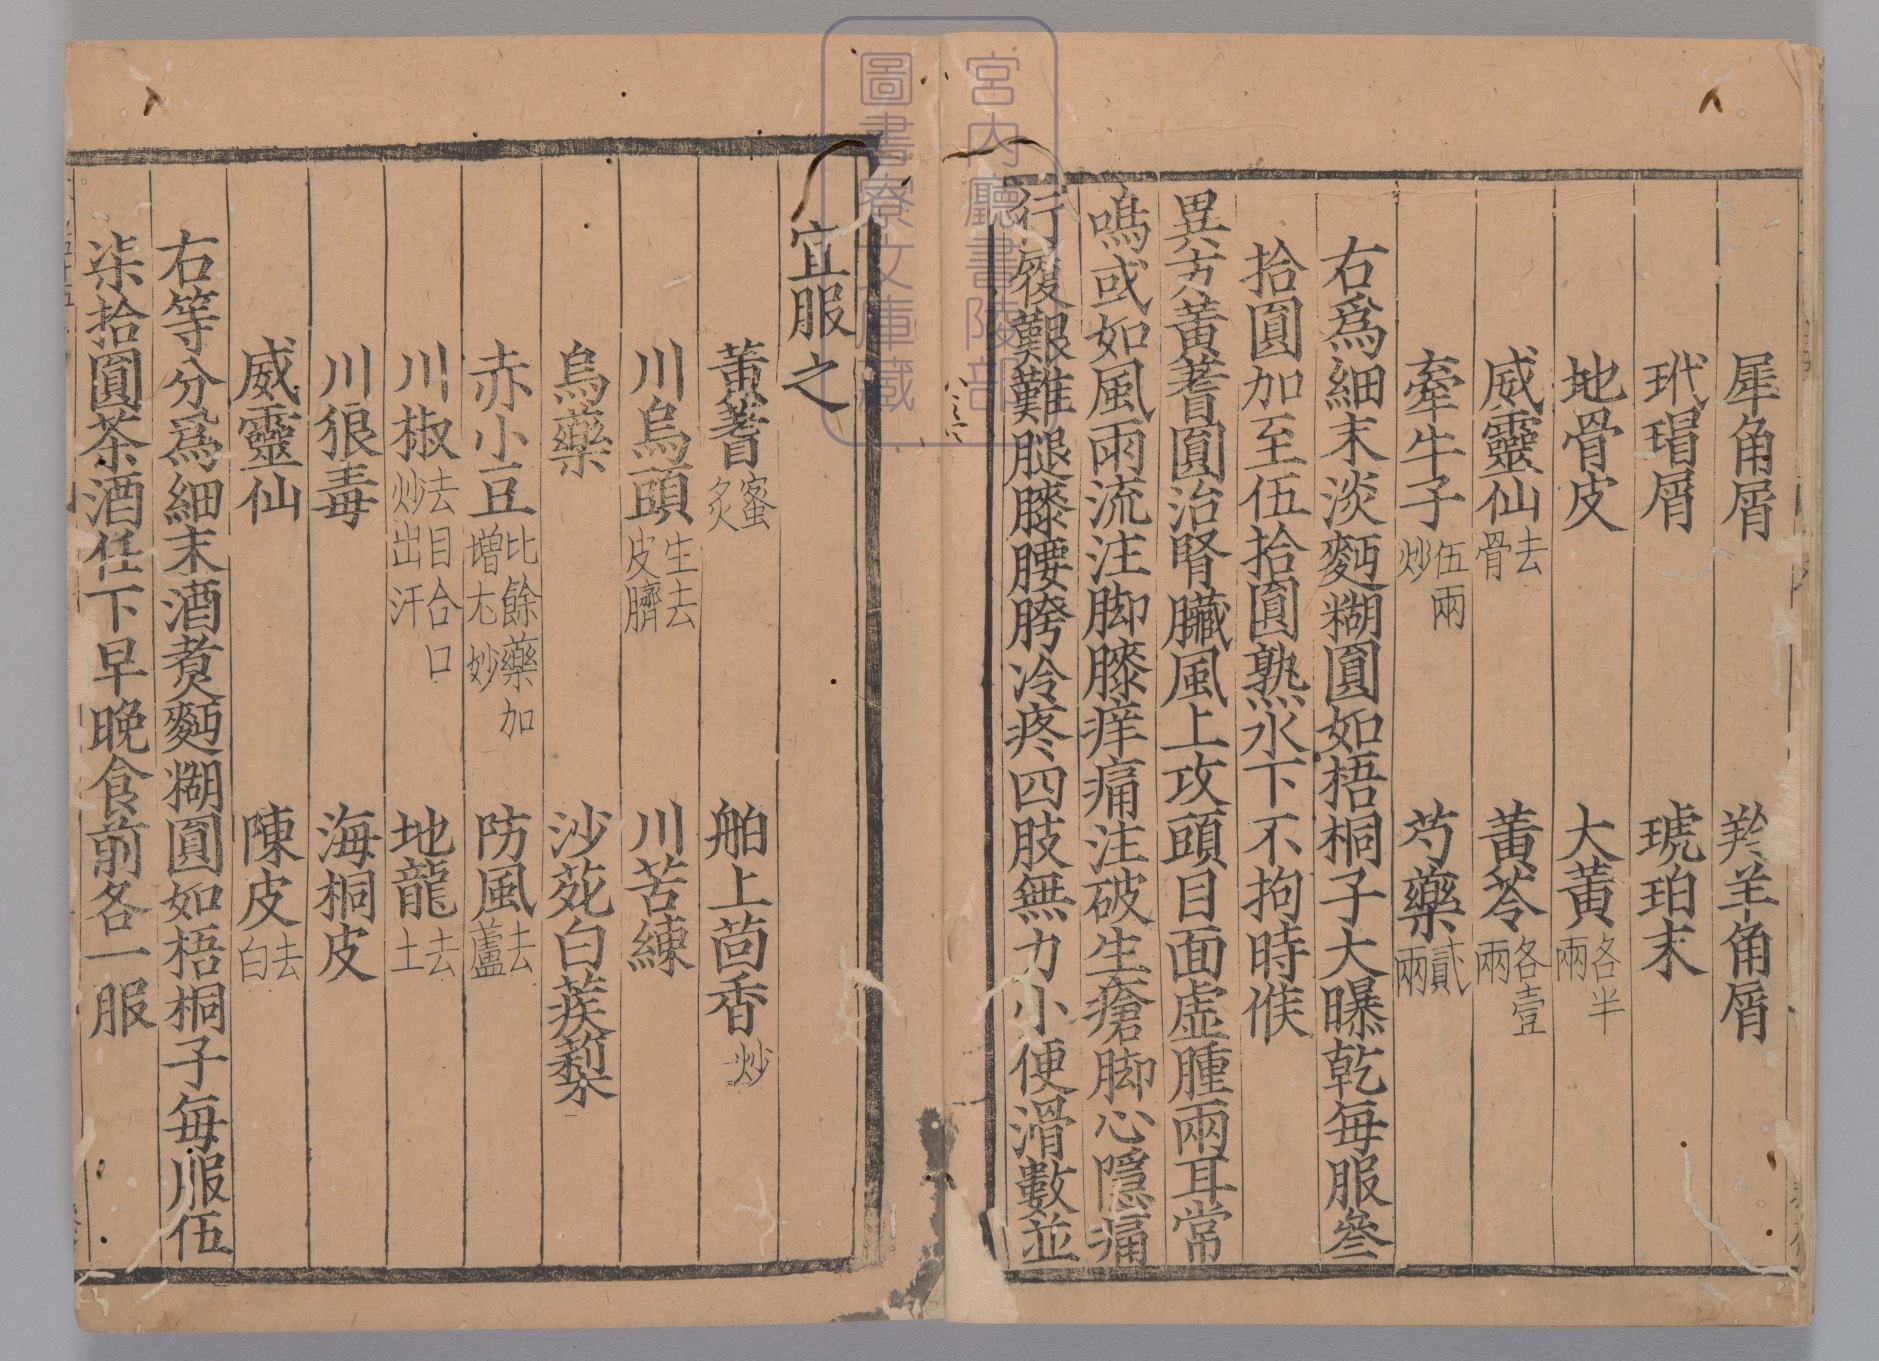 犀角屑 羚羊角屑
玳瑁屑 琥珀末
地骨皮 大黃各半兩
威靈仙去骨 黃芩各壹兩
牽牛子伍兩炒 芍藥貳兩
右爲細末淡麪糊圓如梧桐子大曝乾每服叄
拾圓加至伍拾圓熟水下不拘時候
異方黃耆圓治腎臟風上攻頭目面虛腫兩耳常
鳴或如風雨流注脚膝痒痛注破生瘡脚心隱痛
行履艱難腿膝腰胯冷疼四肢無力小便滑數並
宜服之
黃耆蜜炙 舶上茴香炒
川烏頭生去皮臍 川苦練
烏藥 沙苑白蒺䔧
赤小豆比餘藥加增尤妙 防風去蘆
川椒去目合口炒出汗 地龍去土
川狼毒 海桐皮
威靈仙 陳皮去白
右等分爲細末酒煑麪糊圓如梧桐子每服伍
柒拾圓茶酒任下早晚食前各一服
宮內廳書陵部
圖書寮文庫藏